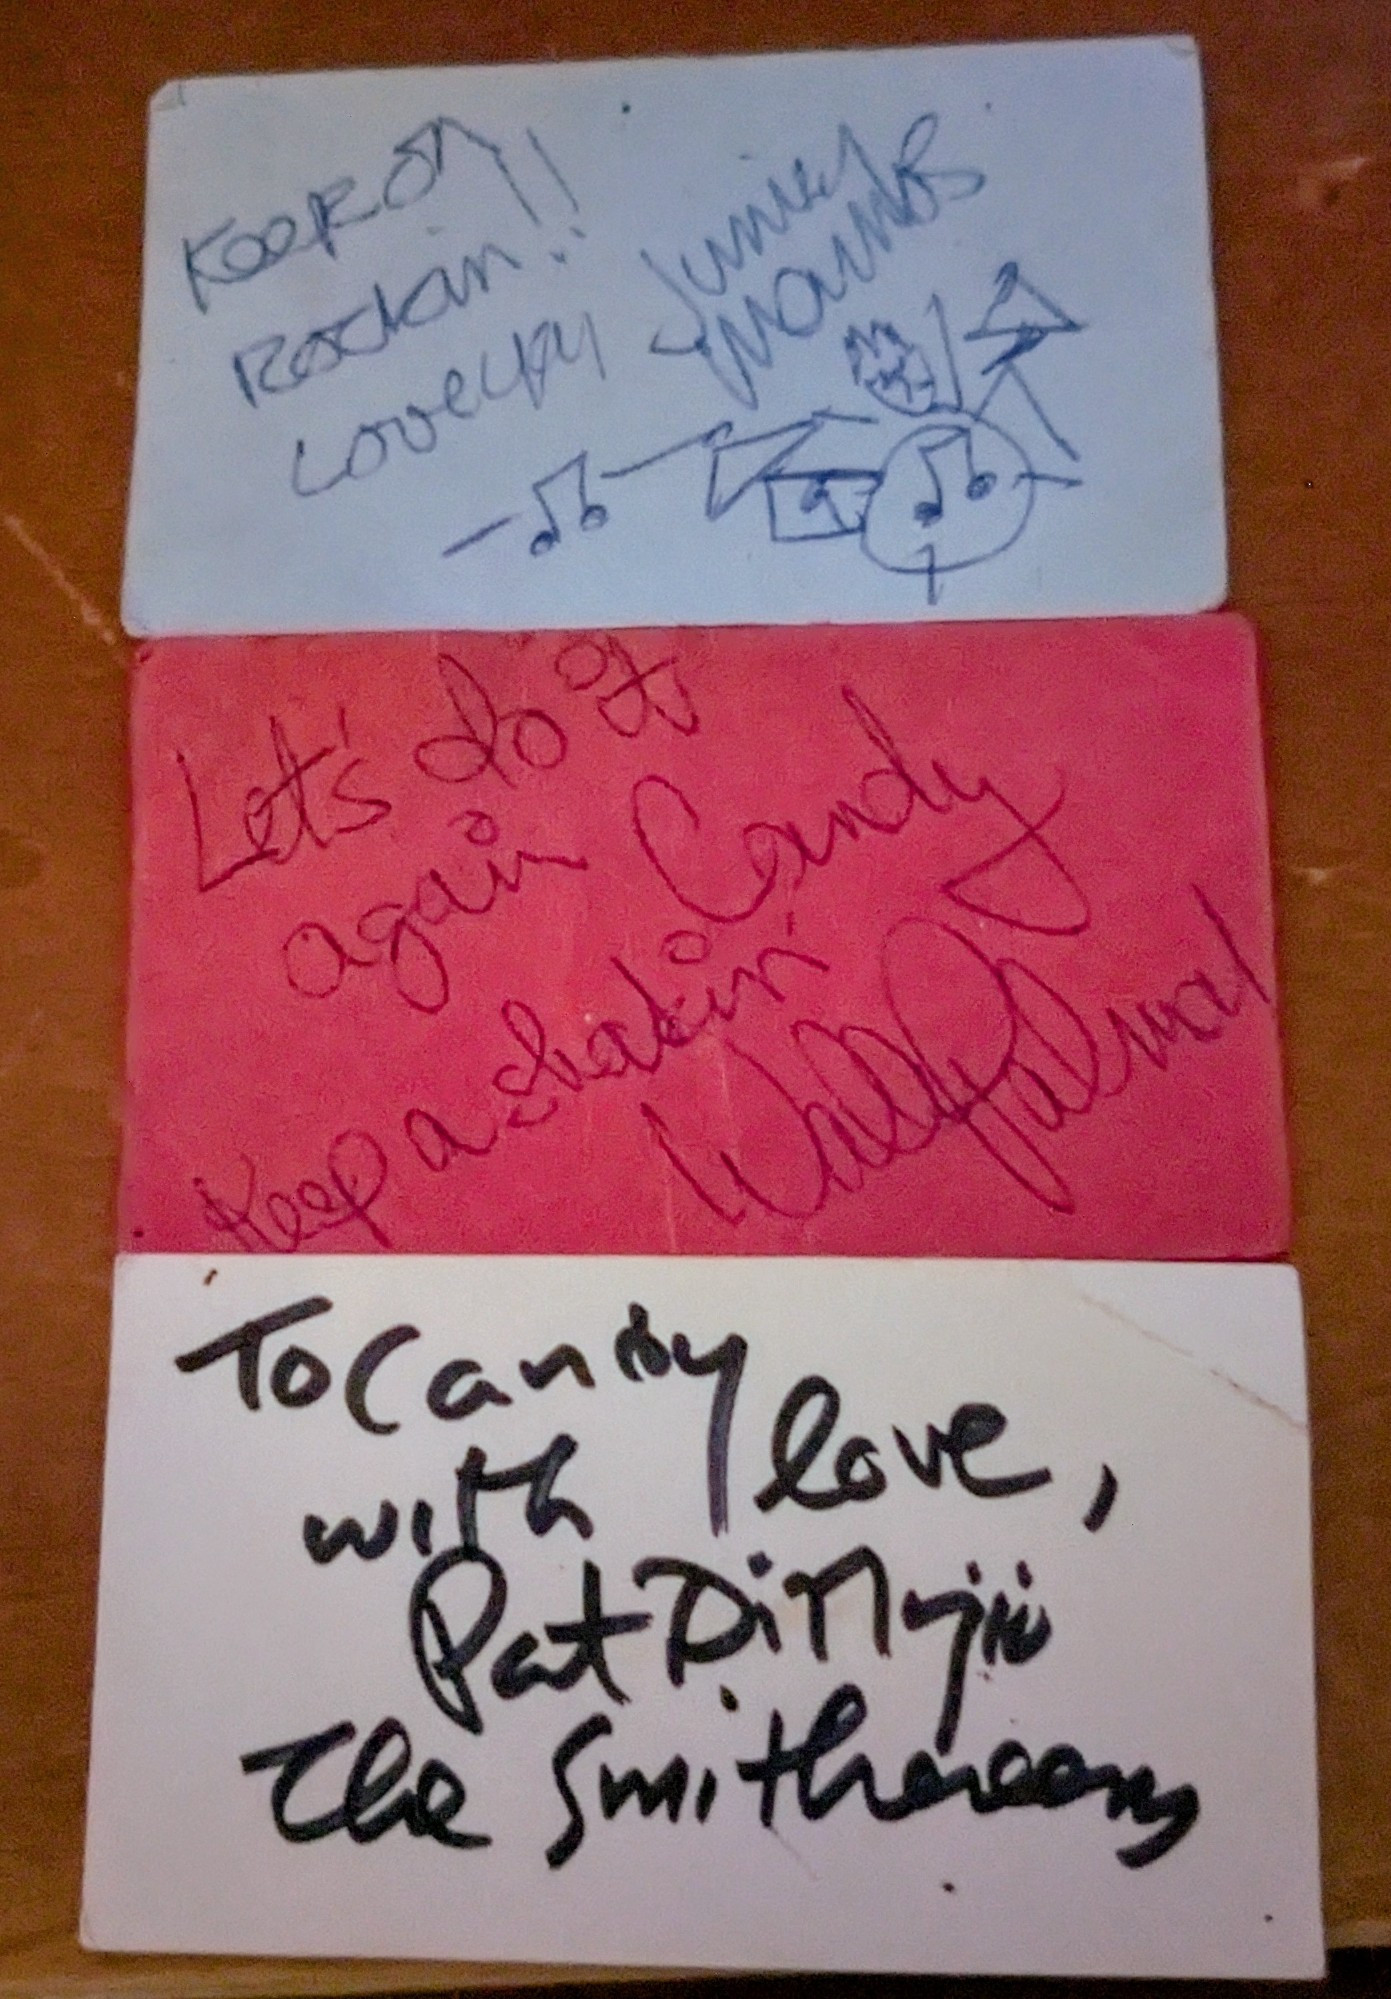 Keep on
Rockin!!
Love ya
Junior
Let's do it
again Candy
Keep a shakin'
Wally Palmar
To Candy
with love,
Pat DiNizio
The Smithereens